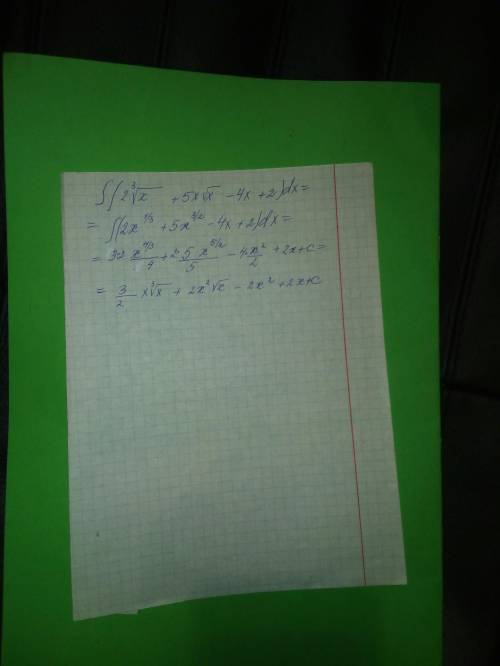 ∫(2∛x + 5x√x − 4x + 2)dx =
= ∫(2x^{1/3} + 5x^{3/2} − 4x + 2)dx =
= 3·2 x^{4/3}/4 + 2·5 x^{5/2}/5 − 4x²/2 + 2x + c =
= 3/2 x∛x + 2x²√x − 2x² + 2x + c